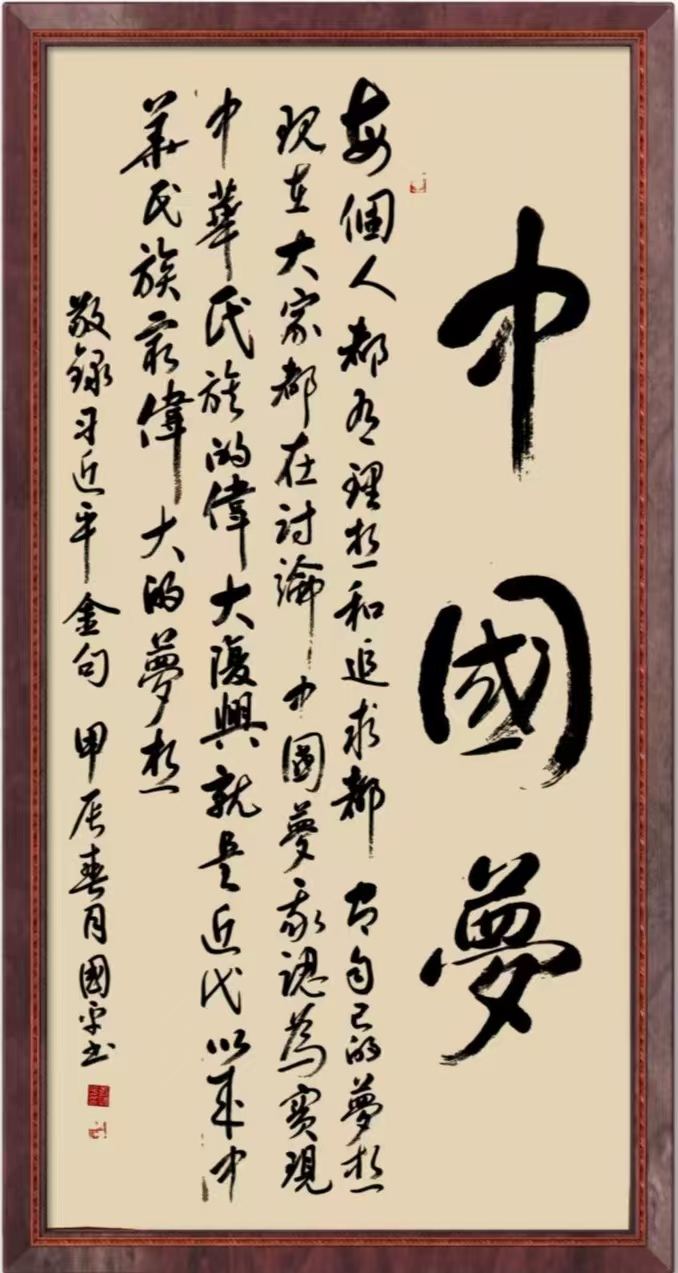 中國夢
每個人都有理想和追求都有自己的夢想
現在大家都在討論中國夢我認為實現
中華民族的偉大復興就是近代以来中
華民族最偉大的夢想
敬錄习近平金句 甲辰春月國平书